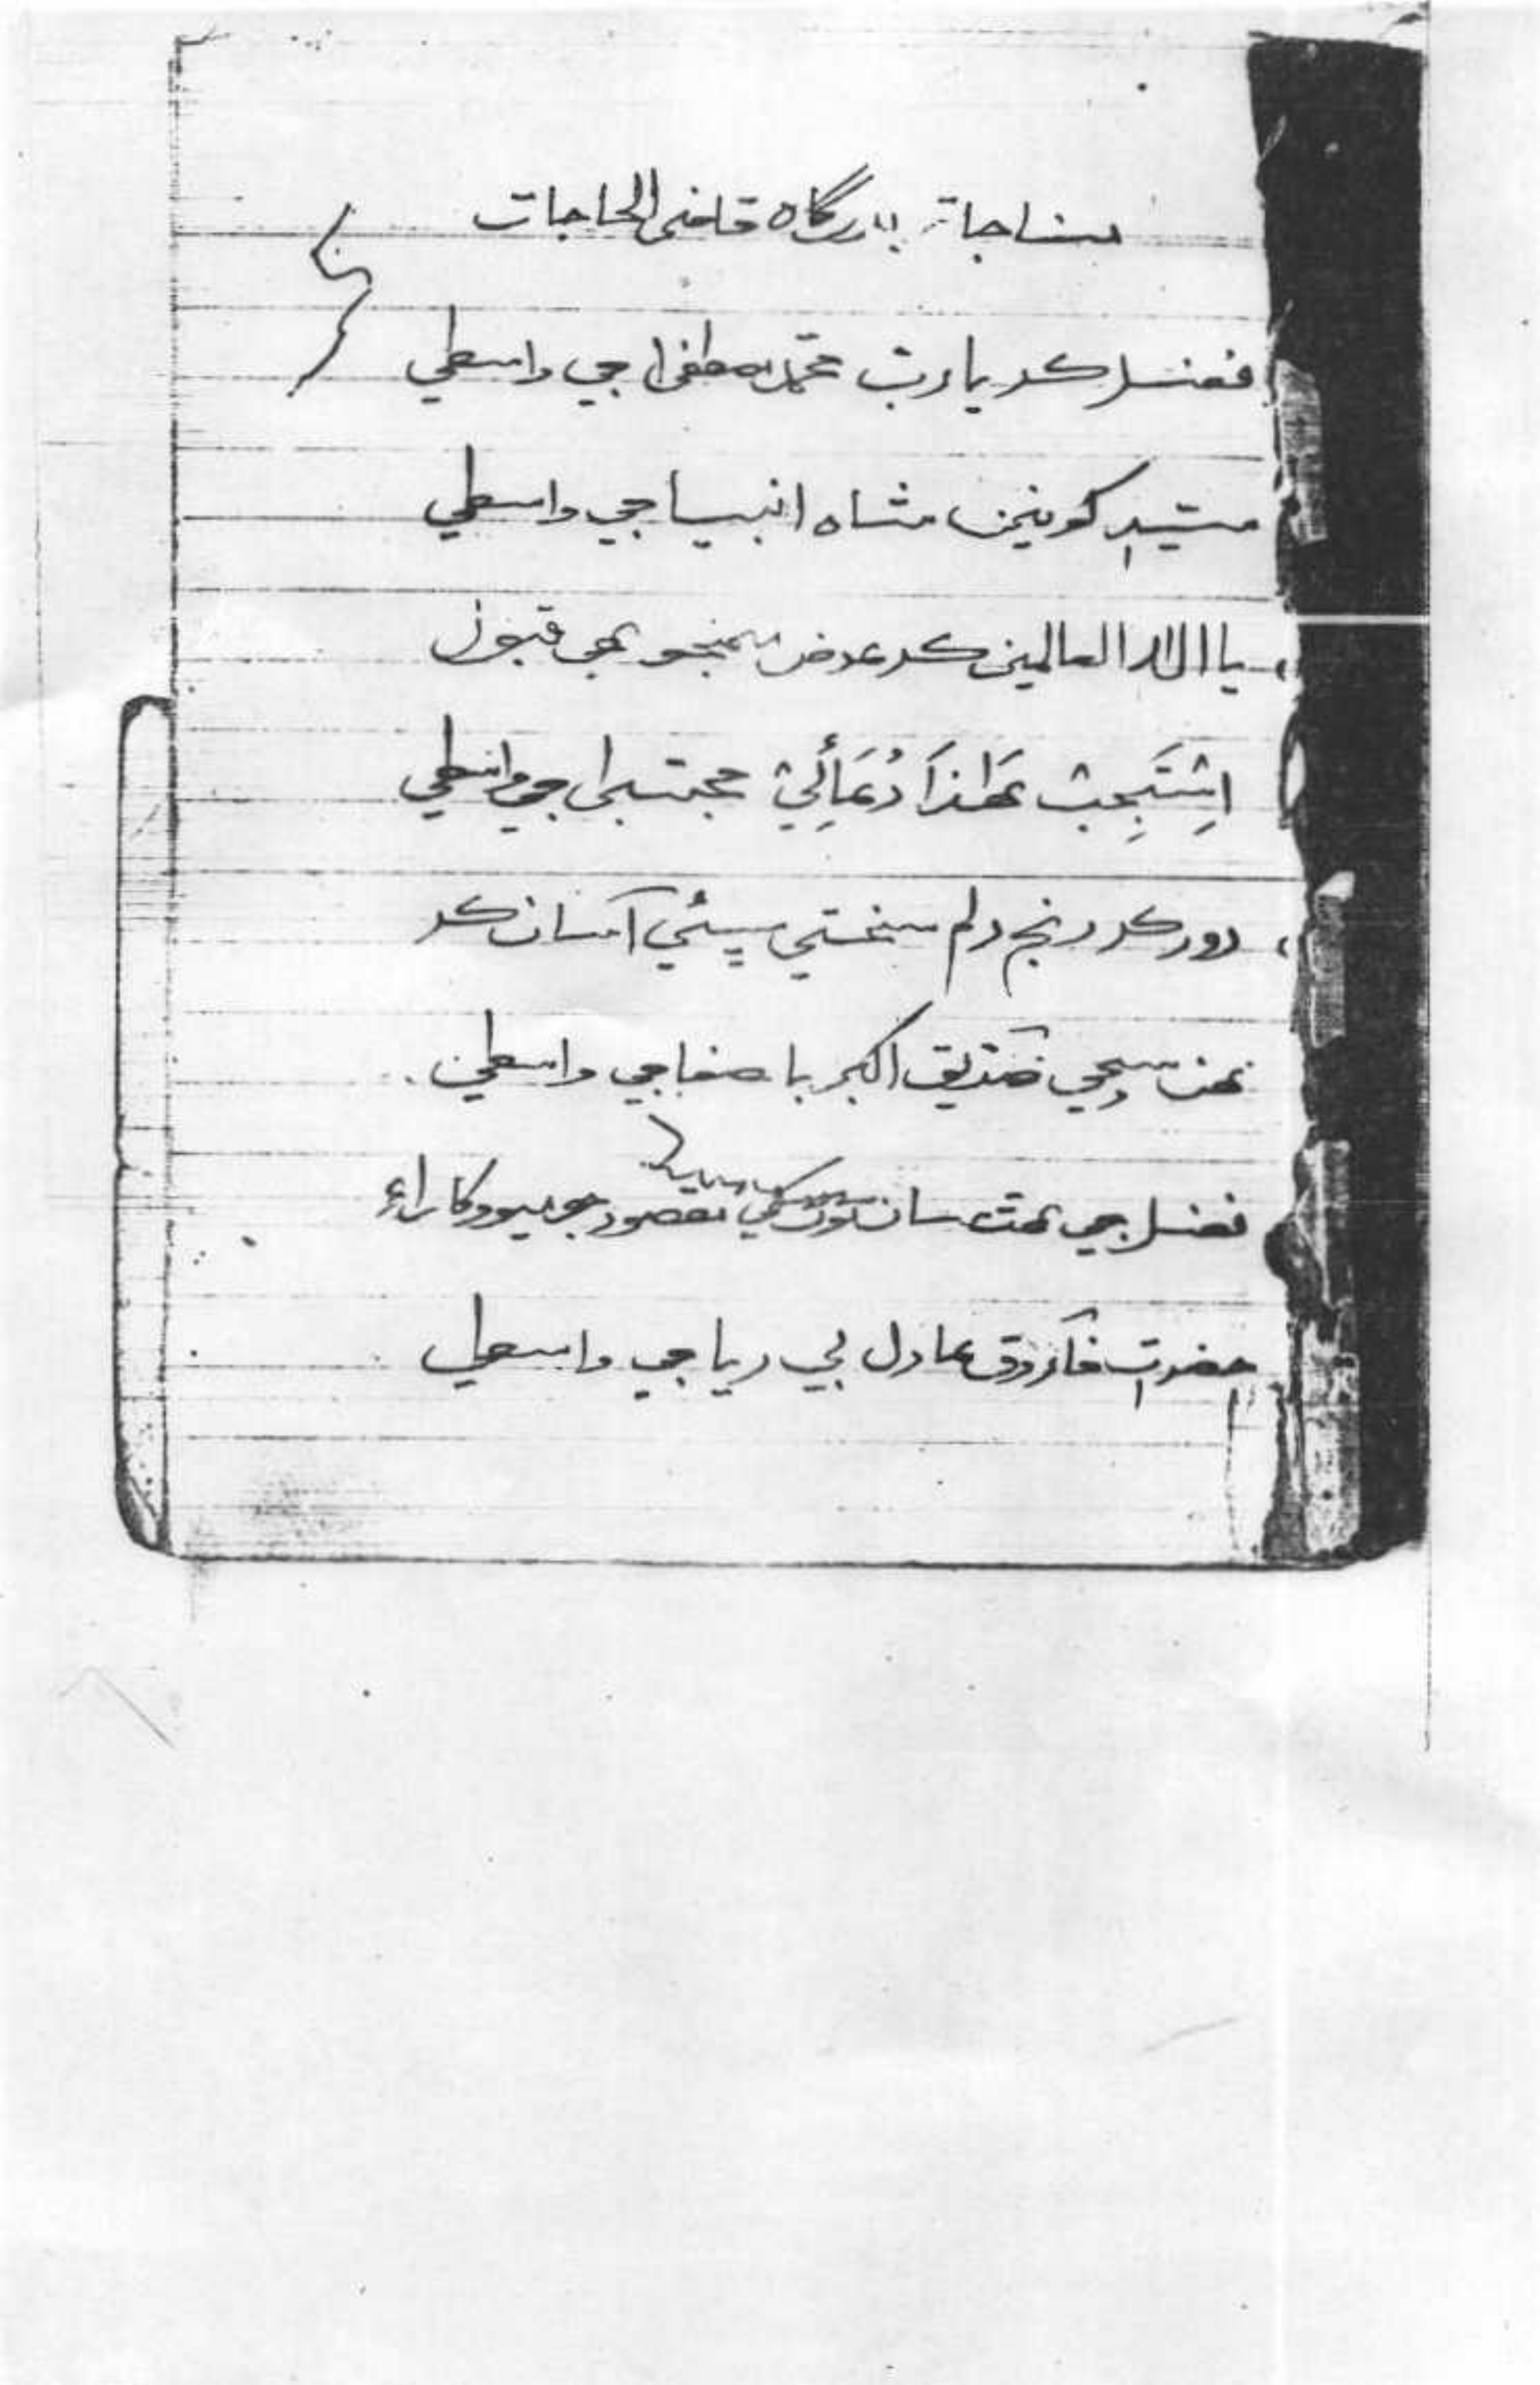 مناجاة بارگاه قاضی الحاجات
فضل كر يا رب محمّد مصطفىٰ جي واسطي
سَيّدِ كونين شاه انبيا جي واسطي
يا الٰه العالمين كر عرض منهنجو هي قبول
اِسْتَجِبْ هٰذَا دُعَائِيْ مجتبىٰ جي واسطي
دور كر رنج و الم سختي سڀئي آسان كر
هن سچي صدّيق اكبر با صفا جي واسطي
فضل جي هٿ سان مقصود جو
حضرتِ فاروق عادل بي ريا جي واسطي